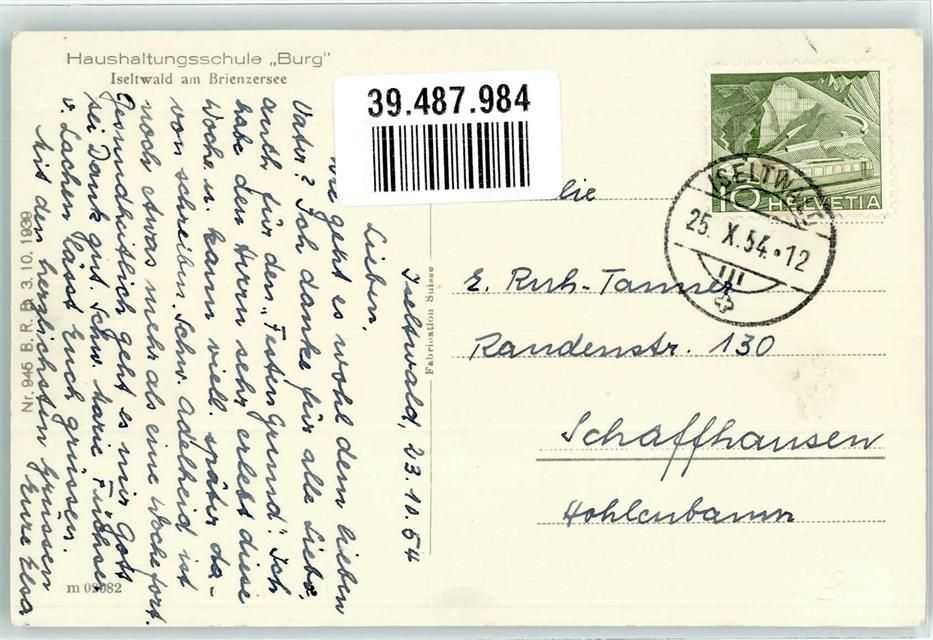 Haushaltungsschule „Burg"
Iseltwald am Brienzersee
39.487.984
HELVETIA
10
ISELTWALD
25. X. 54.-12
Iseltwald, 23.10.54
Lieben,
Wie geht es wohl dem lieben
Vater? Ich danke für alle Liebe,
auch für den „Festen Grund". Ich
habe den Herrn sehr erlebt diese
Woche u. kann viell. später da-
von schreiben. Schw. Adelheid ist
noch etwas mehr als eine Woche fort.
Gesundheitlich geht es mir Gott
sei Dank gut. Schw. Marie
v. Lachen lässt Euch grüssen.
Mit den herzlichsten Grüssen
Eure Elsa
Fabrication Suisse
Nr. 945 B. R. B. 3. 10. 1939
lie
E. Ruh-Tanner
Randenstr. 130
Schaffhausen
Hohlenbaum